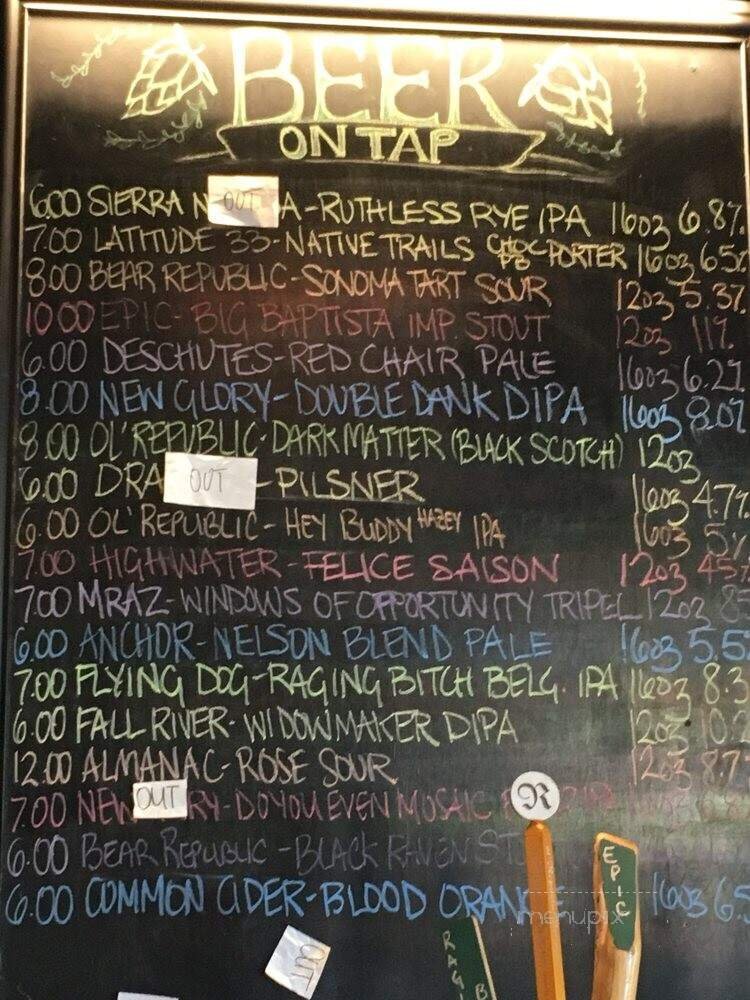 BEER
ON TAP
6.00 SIERRA N OUT A - RUTHLESS RYE IPA 16oz 6.8%
7.00 LATITUDE 33 - NATIVE TRAILS CHOC PORTER 16oz 6.5%
8.00 BEAR REPUBLIC - SONOMA TART SOUR 12oz 5.3%
10.00 EPIC - BIG BAPTISTA IMP. STOUT 12oz 11%
6.00 DESCHUTES - RED CHAIR PALE 16oz 6.2%
8.00 NEW GLORY - DOUBLE DANK DIPA 16oz 8.0%
8.00 OL' REPUBLIC - DARK MATTER (BLACK SCOTCH) 12oz
6.00 DRA OUT - PILSNER 16oz 4.7%
6.00 OL' REPUBLIC - HEY BUDDY HAZEY IPA 16oz 5%
7.00 HIGHWATER - FELICE SAISON 12oz 45%
7.00 MRAZ - WINDOWS OF OPPORTUNITY TRIPEL 12oz
6.00 ANCHOR - NELSON BLEND PALE 16oz 5.5
7.00 FLYING DOG - RAGING BITCH BELG. IPA 16oz 8.3
6.00 FALL RIVER - WIDOWMAKER DIPA 12oz 10.2
12.00 ALMANAC - ROSE SOUR 12oz 8.7
7.00 NEW OUT RY - DO YOU EVEN MOSAIC
6.00 BEAR REPUBLIC - BLACK RAVEN ST
6.00 COMMON CIDER - BLOOD ORAN 16oz 6.5
R
EPIC
RAGI
B
OUT
menupix